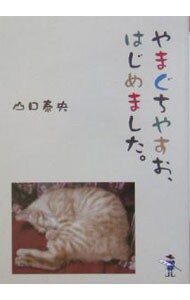 やまぐちやすお、
はじめました。
山口泰央